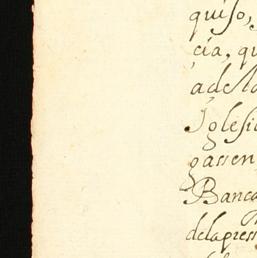 quiso,
cia, qu
adela
Iglesia
gassen
Banca
delapres